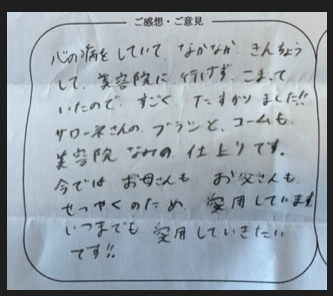 ご感想・ご意見
心の病をしていて、なかなか、きんちょう
して、美容院に行けず、こまって
いたので、すごく、たすかりました!!
サローネさんの、ブラシと、コームも、
美容院なみの仕上りです。
今では、お母さんも、お父さんも、
せつやくのため、愛用しています。
いつまでも、愛用していきたい
です!!